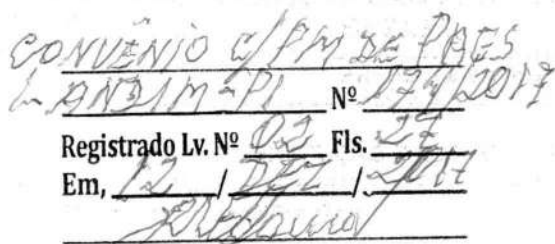 CONVÊNIO c/PM DE PAES
LANDIM-PI Nº 174/2017
Registrado Lv. Nº 02 Fls. 27
Em, 12 / DEZ / 2017